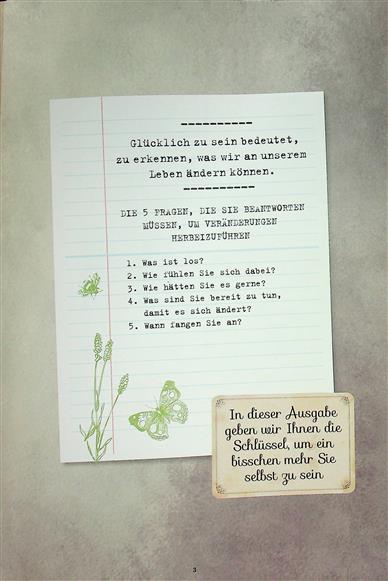 ----------
Glücklich zu sein bedeutet,
zu erkennen, was wir an unserem
Leben ändern können.
----------
DIE 5 FRAGEN, DIE SIE BEANTWORTEN
MÜSSEN, UM VERÄNDERUNGEN
HERBEIZUFÜHREN
1. Was ist los?
2. Wie fühlen Sie sich dabei?
3. Wie hätten Sie es gerne?
4. Was sind Sie bereit zu tun,
damit es sich ändert?
5. Wann fangen Sie an?
In dieser Ausgabe
geben wir Ihnen die
Schlüssel, um ein
bisschen mehr Sie
selbst zu sein
3